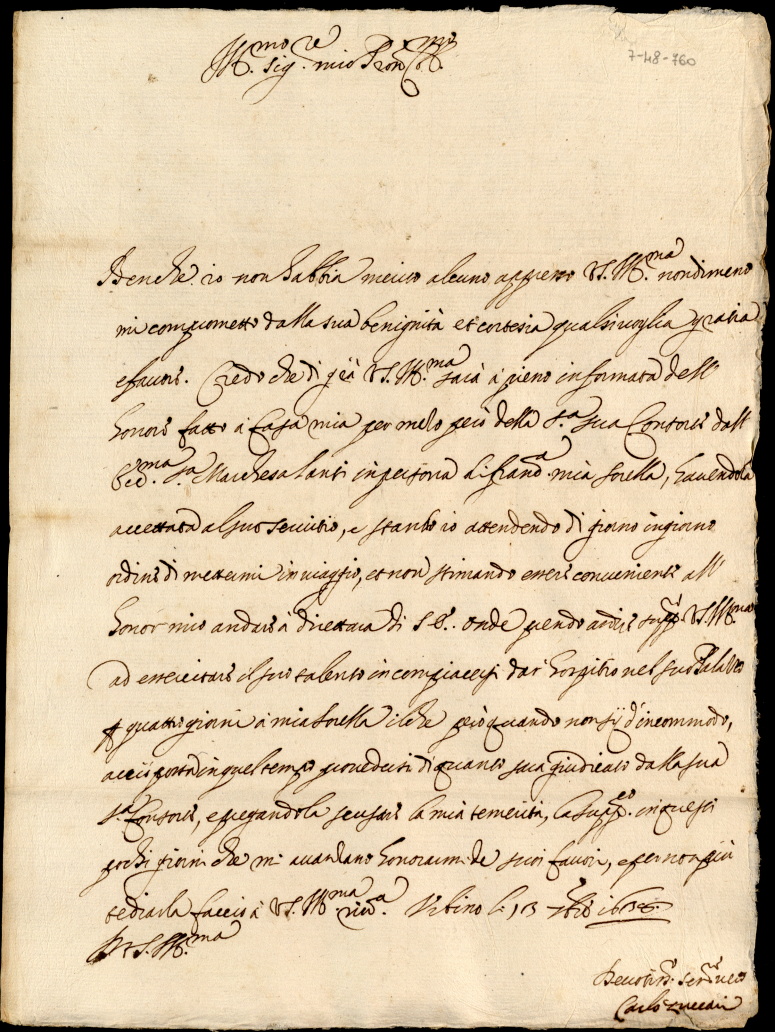 Ill.mo Sig.re mio Pron Col.mo
7-48-760
Benche io non habbia merito alcuno appresso V.S. Ill.ma nondimeno
mi comprometto dalla sua benignità et cortesia qualsivoglia gratia
e favore. Credo che di già V.S. Ill.ma sarà à pieno informata dell
honore fatto à Casa mia per mezo però della S.ra sua Consorte dall
Ecc.ma S.ra Marchesa Lanti in persona di Franc.a mia sorella, havendola
accettata al suo servitio, e stando io attendendo di giorno in giorno
ordine di mettermi in viaggio, et non stimando essere conveniente all
honor mio andare à drittura di S.E. onde prendo ardire supp.re V.S. Ill.ma
ad essercitare il suo talento in compiacersi dar hospitio nel suo Palazzo
p quattro giorni à mia sorella il che però quando non sij d'incommodo,
acciò possa in quel tempo provedersi di quanto sarà giudicato dalla sua
S.ra Consorte, e pregandola scusare la mia temerità, la supp.co in questi
pochi giorni che mi avanzano honorarmi de suoi favori, e per non più
tediarla faccio à V.S. Ill.ma riv.a Urbino li 13
Di V.S. Ill.ma
Devotiss. Ser.re vero
Carlo Zuccari